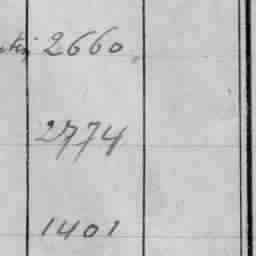 2660
2774
1401